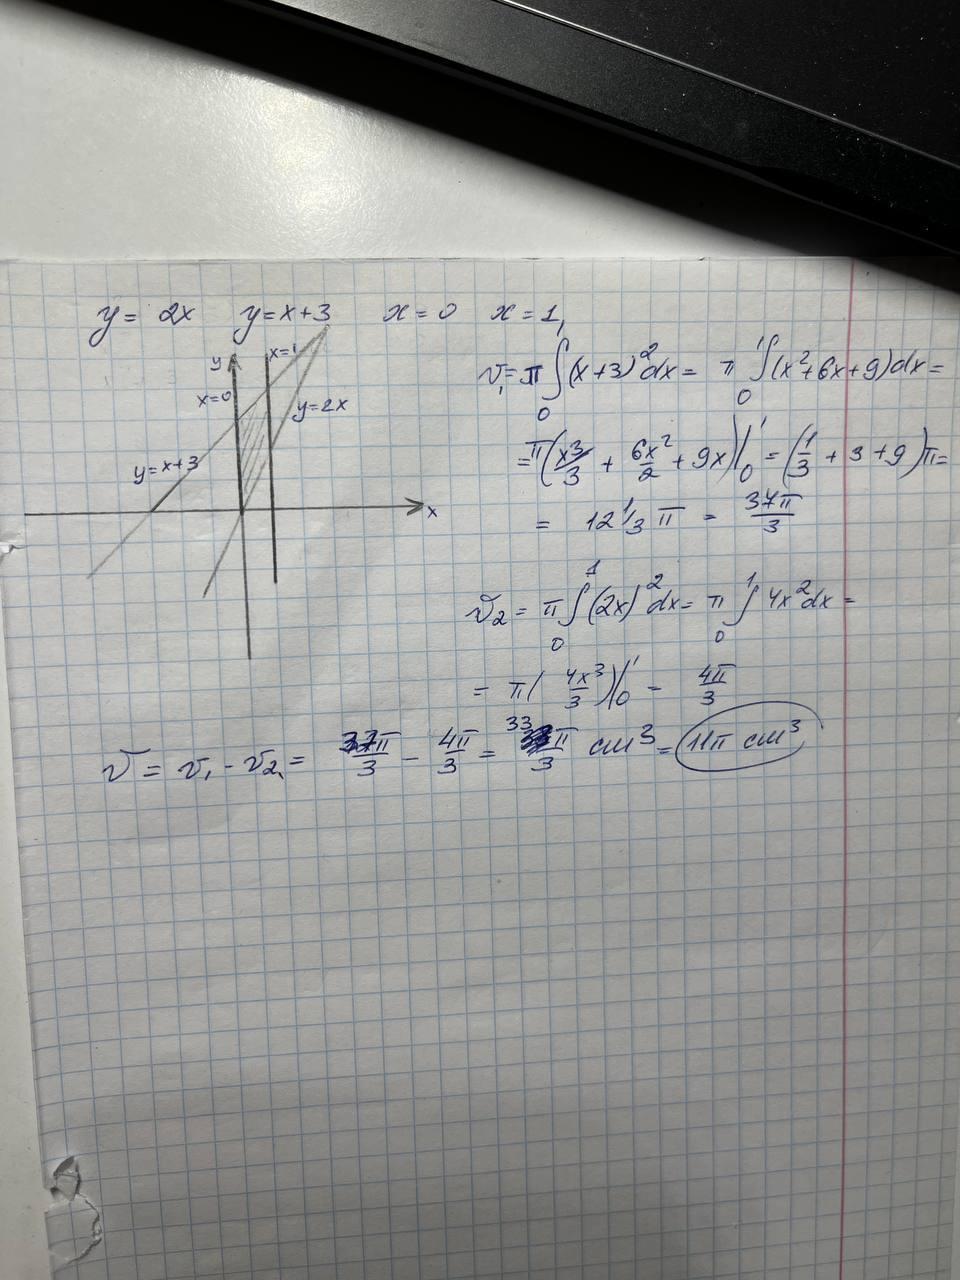 y = 2x y = x+3 x = 0 x = 1,
y x=1
x=0
y=2x
y=x+3
x
V₁ = π ∫₀¹ (x+3)² dx = π ∫₀¹ (x²+6x+9) dx =
= π (x³/3 + 6x²/2 + 9x) |₀¹ = (1/3 + 3 + 9) π =
= 12 1/3 π = 37π/3
V₂ = π ∫₀¹ (2x)² dx = π ∫₀¹ 4x² dx =
= π ( 4x³/3 ) |₀¹ = 4π/3
V = V₁ - V₂ = 37π/3 - 4π/3 = 33π/3 см³ = 11π см³